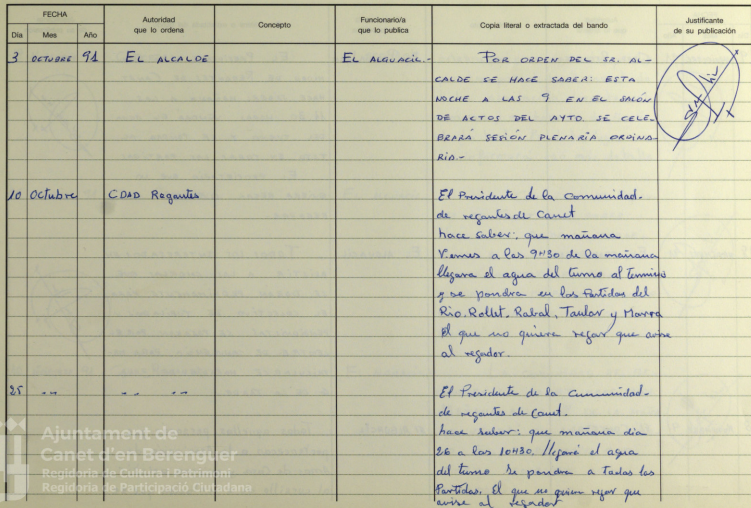 FECHA
Día Mes Año
Autoridad
que lo ordena
Concepto
Funcionario/a
que lo publica
Copia literal o extractada del bando
Justificante
de su publicación
3 OCTUBRE 91 EL ALCALDE EL ALGUACIL.- POR ORDEN DEL SR. AL-
CALDE SE HACE SABER: ESTA
NOCHE A LAS 9 EN EL SALÓN
DE ACTOS DEL AYTO. SE CELE-
BRARÁ SESIÓN PLENARIA ORDINA-
RIA.-
10 Octubre CDAD Regantes El Presidente de la Comunidad.
de regantes de Canet
hace saber: que mañana
Viernes a las 9H30 de la mañana
llegara el agua del turno al termino
y se pondra en las Partidas del
Rio, Rollet, Rabal, Taular y Marra
El que no quiera regar que avise
al regador.
25 " " " " " " El Presidente de la Cumunidad-
de regantes de Canet.
hace saber: que mañana dia
26 a las 10H30. llegará el agua
del turno Se pondra a Todas las
Partidas. El que no quiera regar que
avise al regador
Ajuntament de
Canet d'en Berenguer
Regidoria de Cultura i Patrimoni
Regidoria de Participació Ciutadana